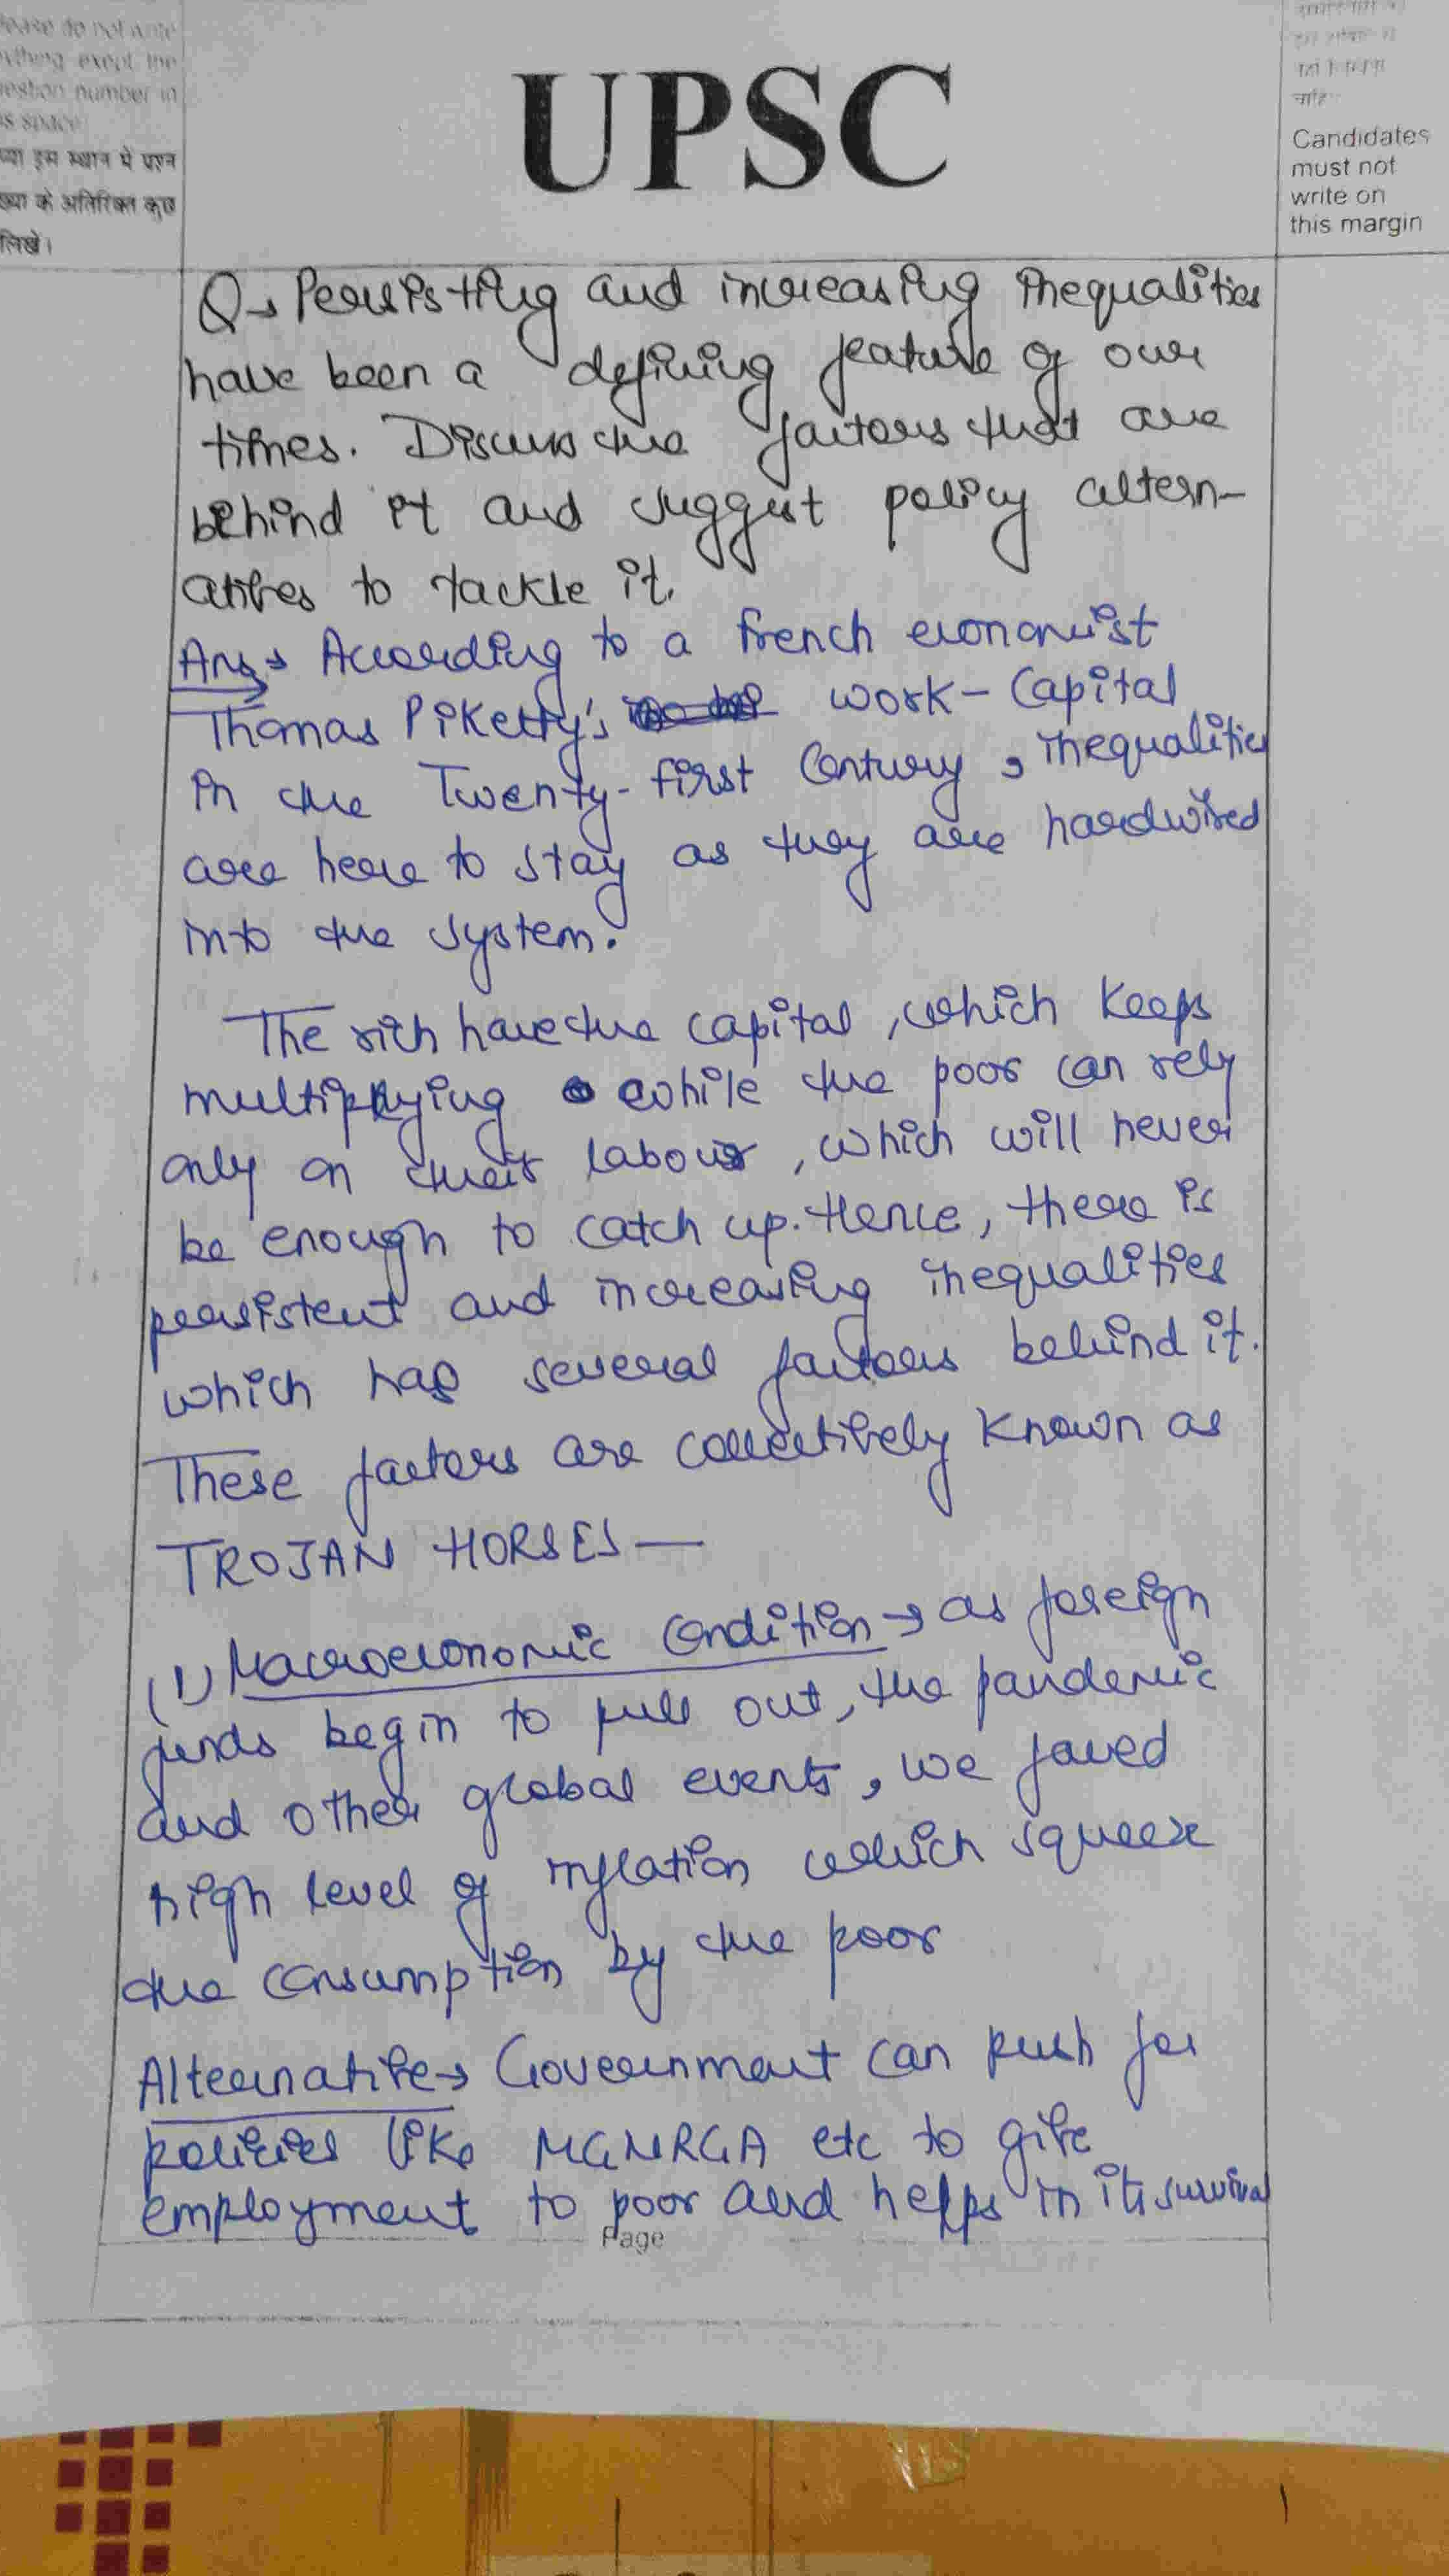 Please do not write
anything exept the
question number in
this space
UPSC
Candidates
must not
write on
this margin
संख्या इस स्थान में प्रश्न
संख्या के अतिरिक्त कुछ
लिखें।
Q→ Persisting and increasing inequalities
have been a defining feature of our
times. Discuss the factors that are
behind it and suggest policy altern-
atives to tackle it.
Ans→ According to a french economist
Thomas Piketty's work- Capital
in the Twenty-first Century, inequalities
are here to stay as they are hardwired
into the system.
The rich have the capital, which keeps
multiplying while the poor can rely
only on their labour, which will never
be enough to catch up. Hence, there is
persistent and increasing inequalities
which has several factors behind it.
These factors are collectively known as
TROJAN HORSES—
(1) Macroeconomic Condition→ as foreign
funds begin to pull out, the pandemic
and other global events, we faced
high level of inflation which squeeze
the consumption by the poor
Alternative→ Government can push for
policies like MGNRGA etc to give
employment to poor and helps in its survival
Page